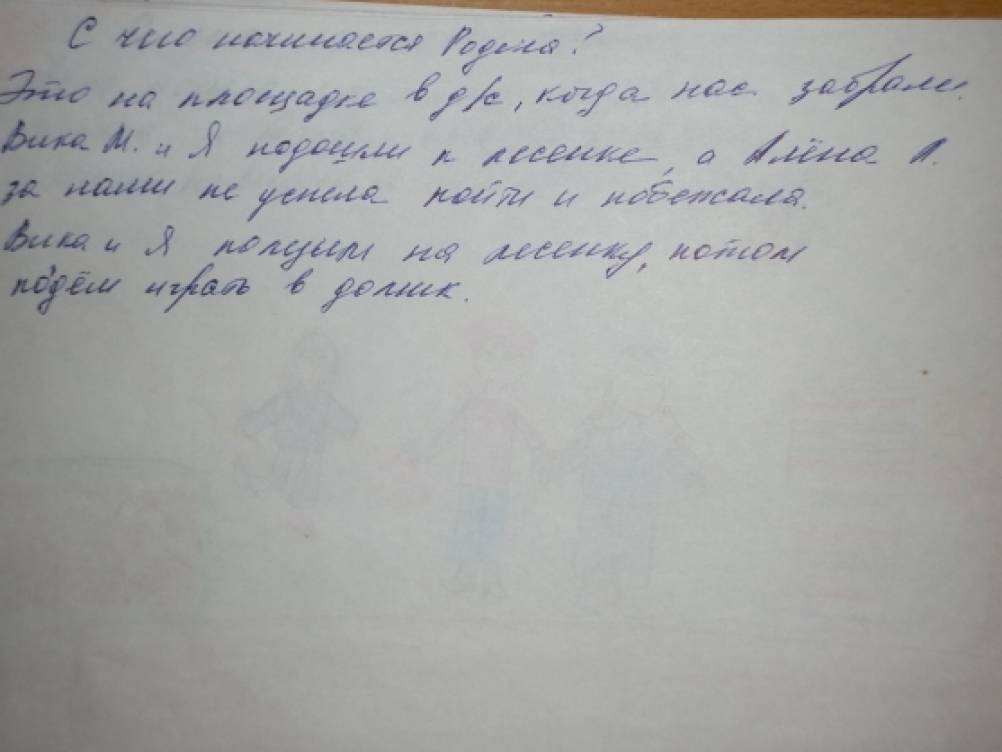 С чего начинается Родина?
Это на площадке в д/с, когда нас забрали.
Вика М. и Я подошли к лесенке, а Алёна Л.
за нами не успела пойти и побежала.
Вика и Я полезли на лесенку, потом
пойдём играть в домик.